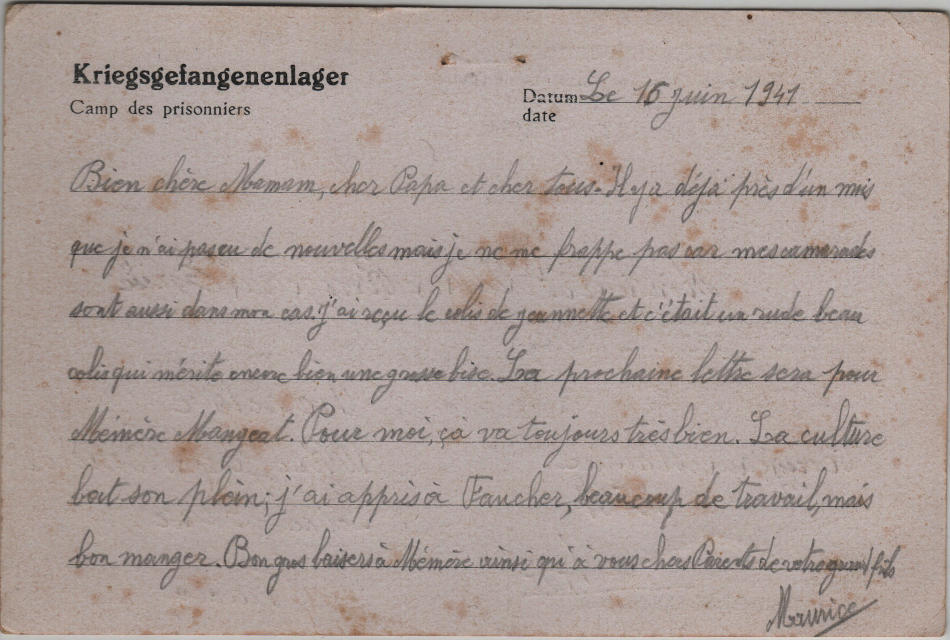 Kriegsgefangenenlager
Camp des prisonniers
Datum Le 16 juin 1941
date
Bien chère Mamam, cher Papa et cher tous. Il y a déjà près d'un mois
que je n'ai pas eu de nouvelles mais je ne me frappe pas car mes camarades
sont aussi dans mon cas. J'ai reçu le colis de Jeannette et c'était un rude beau
colis qui mérite encore bien une grosse bise. La prochaine lettre sera pour
Mémère Mangeat. Pour moi, ça va toujours très bien. La culture
bat son plein; j'ai appris à Faucher, beaucoup de travail, mais
bon manger. Bon gros baisers à Mémère ainsi qu'à vous chers Parents de votre grand fils
Maurice